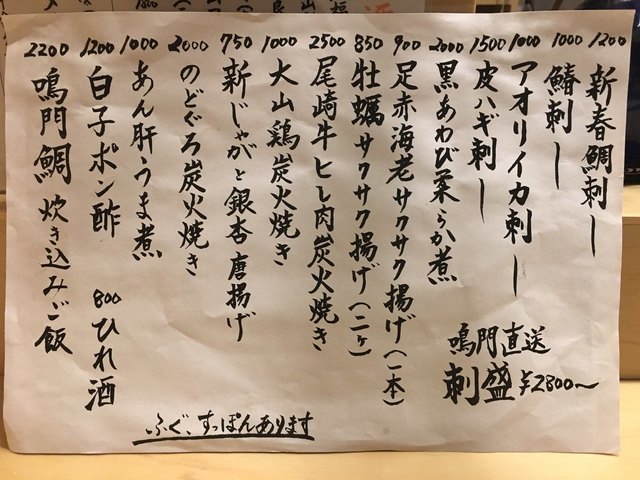 1200 新春鯛刺し
1000 鰆刺し
1000 アオリイカ刺し
1500 皮ハギ刺し
2000 黒あわび柔らか煮
鳴門直送
刺盛 ¥2800〜
900 足赤海老サクサク揚げ(一本)
850 牡蠣サクサク揚げ(二ヶ)
2500 尾崎牛ヒレ肉炭火焼き
1000 大山鶏炭火焼き
750 新じゃがと銀杏唐揚げ
2000 のどぐろ炭火焼き
1000 あん肝うま煮
1200 白子ポン酢
800 ひれ酒
2200 鳴門鯛炊き込みご飯
ふぐ、すっぽんあります